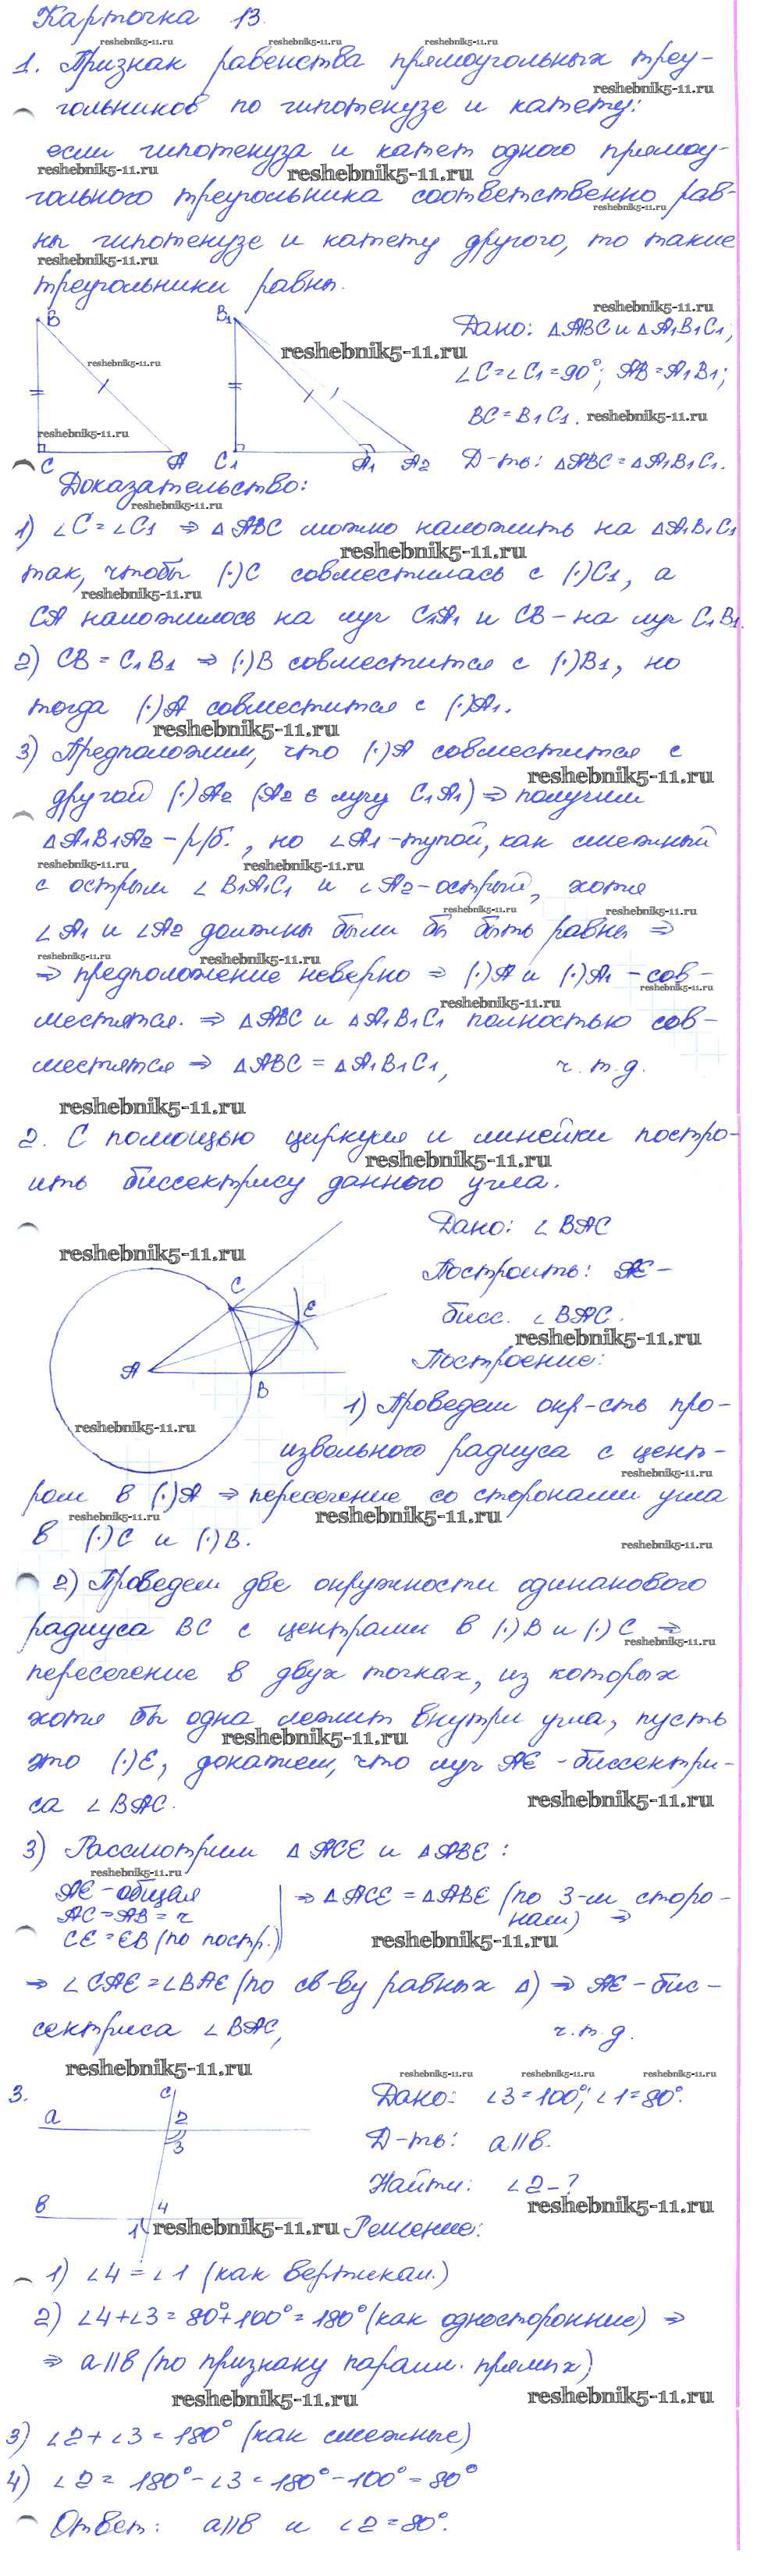 Карточка 13.
1. Признак равенства прямоугольных треу-
гольников по гипотенузе и катету:
если гипотенуза и катет одного прямоу-
гольного треугольника соответственно рав-
ны гипотенузе и катету другого, то такие
треугольники равны.
B B1
C A C1 A1 A2
Дано: ΔABC и ΔA1B1C1;
∠C=∠C1=90°; AB=A1B1;
BC=B1C1.
Д-ть: ΔABC=ΔA1B1C1.
Доказательство:
1) ∠C=∠C1 ⇒ ΔABC можно наложить на ΔA1B1C1
так, чтобы (·)C совместилась с (·)C1, а
CA наложилось на луч C1A1 и CB – на луч C1B1.
2) CB = C1B1 ⇒ (·)B совместится с (·)B1, но
тогда (·)A совместится с (·)A1.
3) Предположим, что (·)A совместится с
другой (·)A2 (A2 ∈ лучу C1A1) ⇒ получим
ΔA1B1A2 – р/б., но ∠A1 – тупой, как смежный
с острым ∠B1A1C1 и ∠A2 – острый, хотя
∠A1 и ∠A2 должны были бы быть равны ⇒
⇒ предположение неверно ⇒ (·)A и (·)A1 – сов-
местятся. ⇒ ΔABC и ΔA1B1C1 полностью сов-
местятся ⇒ ΔABC = ΔA1B1C1, ч.т.д.
2. С помощью циркуля и линейки постро-
ить биссектрису данного угла.
C E
A B
Дано: ∠BAC
Построить: AE –
бисс. ∠BAC.
Построение:
1) Проведем окр-сть про-
извольного радиуса с цент-
ром в (·)A ⇒ пересечение со сторонами угла
в (·)C и (·)B.
2) Проведем две окружности одинакового
радиуса BC с центрами в (·)B и (·)C ⇒
пересечение в двух точках, из которых
хотя бы одна лежит внутри угла, пусть
это (·)E, докажем, что луч AE – биссектри-
са ∠BAC.
3) Рассмотрим ΔACE и ΔABE:
AE – общая
AC = AB = r
CE = EB (по постр.)
⇒ ΔACE = ΔABE (по 3-м сторо-
нам) ⇒
⇒ ∠CAE = ∠BAE (по св-ву равных Δ) ⇒ AE – бис-
сектриса ∠BAC, ч.т.д.
3.
c
a 2
3
в 4
1
Дано: ∠3=100°; ∠1=80°.
Д-ть: a||в.
Найти: ∠2-?
Решение:
1) ∠4 = ∠1 (как вертикал.)
2) ∠4+∠3 = 80°+100° = 180° (как односторонние) ⇒
⇒ a||в (по признаку паралл. прямых)
3) ∠2+∠3 = 180° (как смежные)
4) ∠2 = 180°-∠3 = 180°-100° = 80°
Ответ: a||в и ∠2=80°.
reshebnik5-11.ru